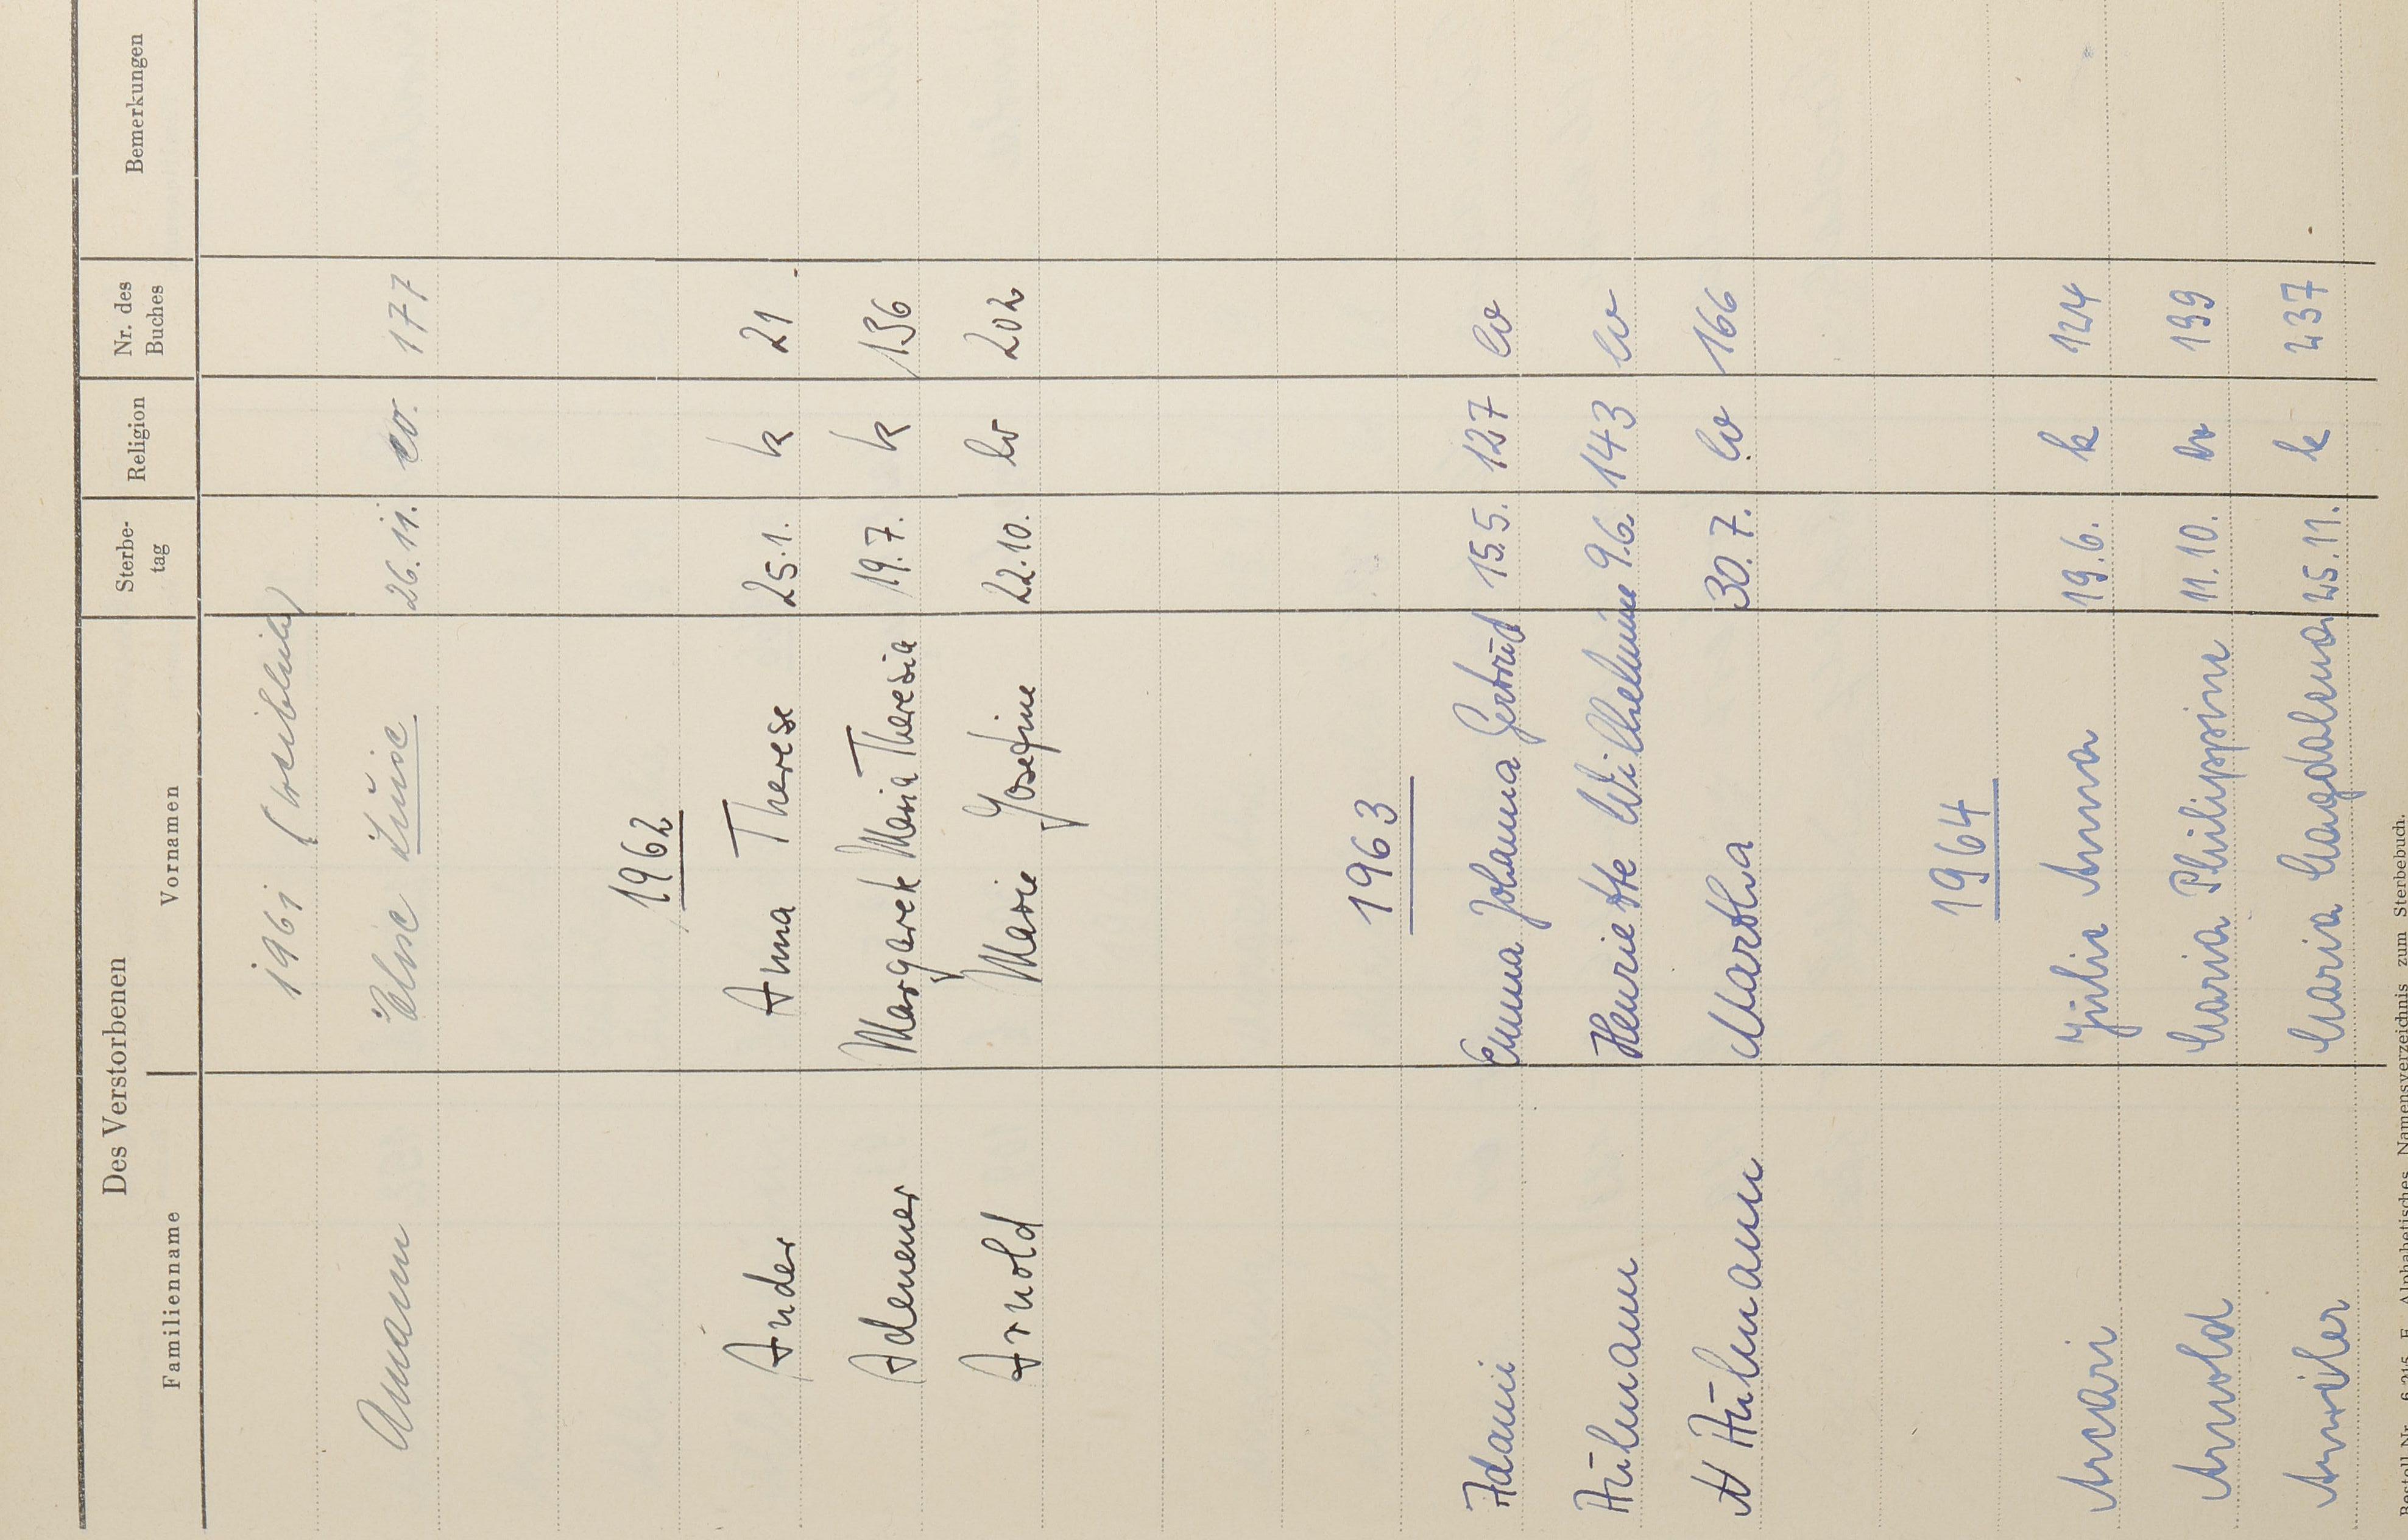 Des Verstorbenen
Familienname Vornamen Sterbe-tag Religion Nr. des Buches Bemerkungen
1961 (weiblich)
Amann Elise Luise 26.11. ev. 177
1962
Ander Anna Therese 25.1. k 21
Ademer Margarete Maria Theresia 19.7. k 156
Arnold Marie Josefine 22.10. ev 202
1963
Adami Emma Johanna Gertrud 15.5. 127 ev
Aülmann Henriette Wilhelmine 9.6. 143 ev
Aülmann Martha 30.7. ev 166
1964
Arcari Julie Anna 19.6. k 124
Arnold Maria Philippine 11.10. ev 199
Maria Magdalena 25.11. k 237
Bestell-Nr. 6 215 F Alphabetisches Namensverzeichnis zum Sterbebuch.